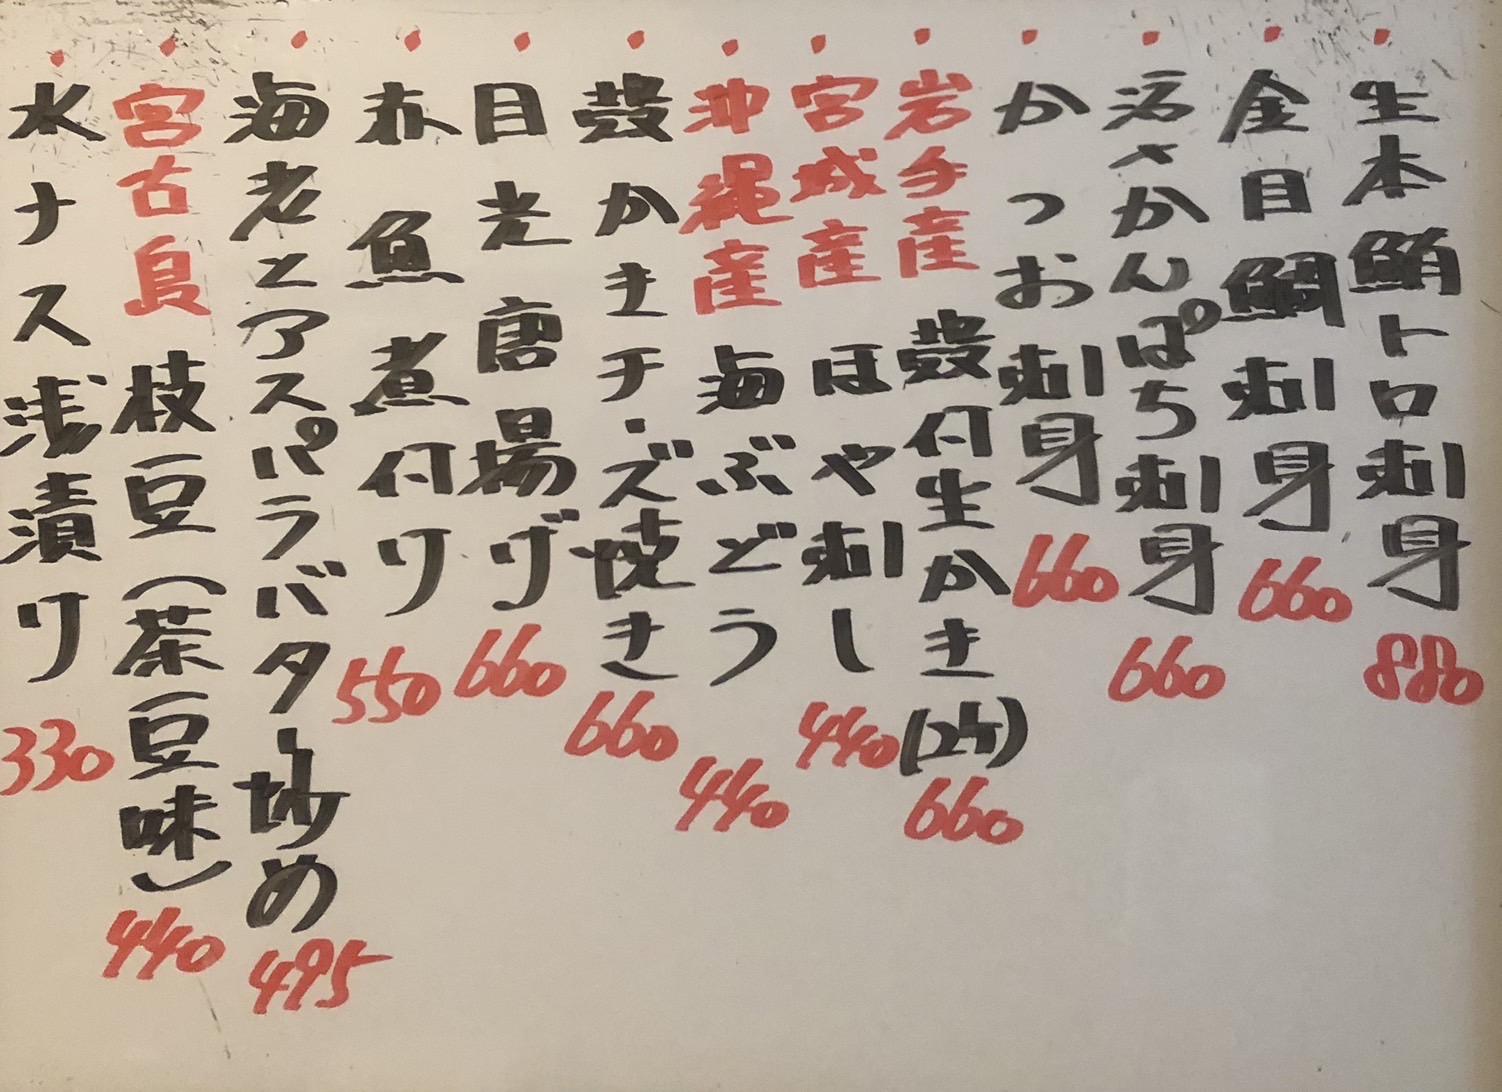 生本鮪トロ刺身 880
金目鯛刺身 660
活〆かんぱち刺身 660
かつお刺身 660
岩手産 殻付生かき(2ケ) 660
宮城産 ほや刺し 440
沖縄産 海ぶどう 440
殻かきチーズ焼き 660
目光唐揚げ 660
赤魚煮付け 550
海老とアスパラバター炒め 495
宮古島 枝豆(茶豆味) 440
水ナス浅漬け 330